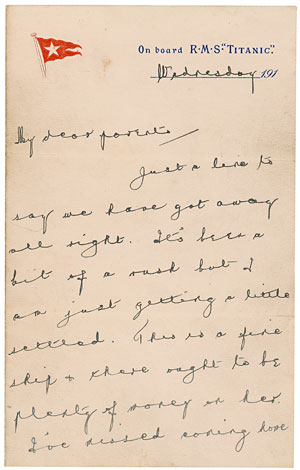 On board R·M·S "TITANIC".
Wednesday 191
My dear parents
Just a line to
say we have got away
all right. It's been a
bit of a rush but I
am just getting a little
settled. This is a fine
ship & there ought to be
plenty of money on her.
I've missed coming home